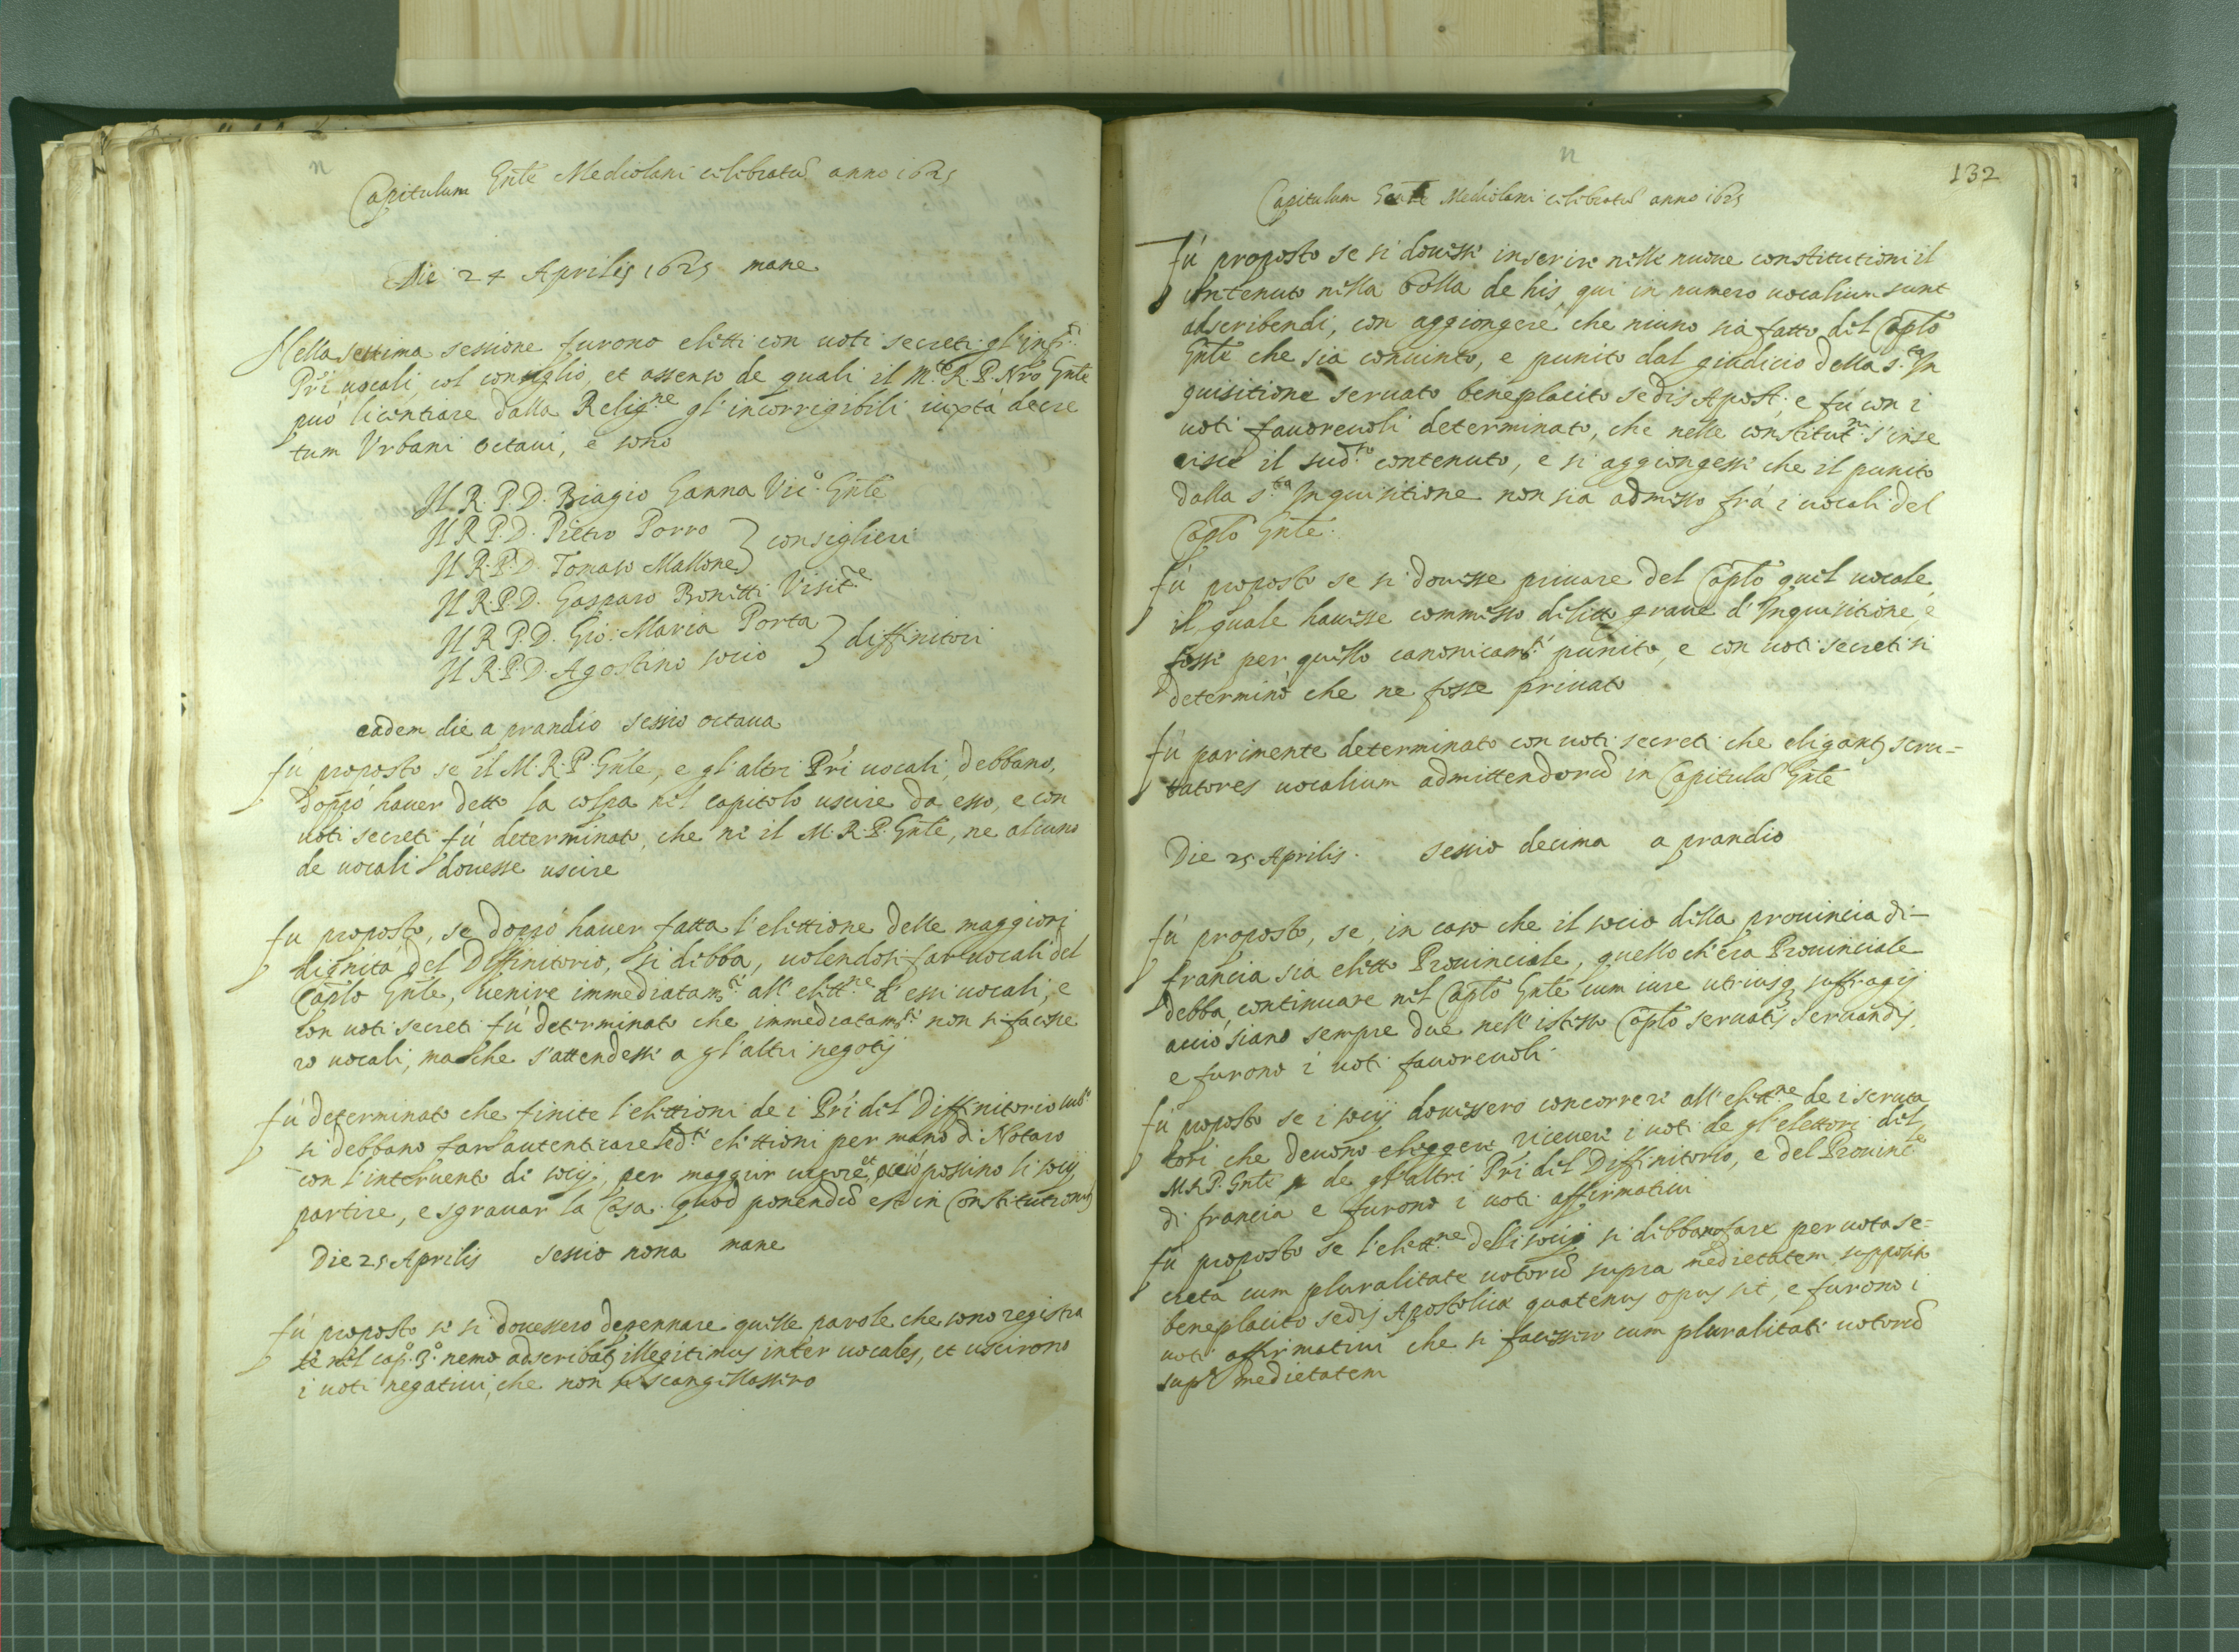 n
Capitulum Gñle Mediolani celebratũ anno 1625
Die 24 Aprilis 1625 mane
Nella settima sessione furono eletti con uoti secreti gl'infr.i
Pri uocali, col consiglio, et assenso de quali il M.to R. P. Nrõ Gñle
può licentiare dalla Relig.ne gl'incorrigibili iuxta decre
tum Vrbani octaui, e sono
Il R. P. D. Biagio Ganna Vic.o Gñle
Il R. P. D. Pietro Porro
Il R. P. D. Tomaso Mallone } consiglieri
Il R. P. D. Gasparo Bonetti Visit.re
Il R. P. D. Gio: Maria Porta
Il R. P. D. Agostino socio } diffinitori
eadem die a prandio sessio octaua
fù proposto se il M. R. P. Gñle, e gl'altri Pri uocali, debbano,
doppò hauer detto la colpa nel capitolo uscire da esso, e con
uoti secreti fù determinato, che ne il M. R. P. Gñle, ne alcuno
de uocali douesse uscire
fu proposto, se doppò hauer fatta l'elettione delle maggiori
dignità del Diffinitorio, si debba, uolendosi far uocali del
Caplo Gñle, uenire immediatam.te all'elett.ne d'essi uocali, e
con uoti secreti fù determinato che immediatam.te non si facesse
ro uocali, ma che s'attendesse a gl'altri negotij
fù determinato che finite l'elettioni de i Pri del Diffinitorio
si debbano far autenticare le d.te elettioni per mano di Notaro
con l'interuento di socij, per maggior uigore, et acciò possino li socij
partire, e sgrauar la Casa. quod ponendũ est in Constitutionib
Die 25 Aprilis sessio nona mane
fù proposto se si douessero depennare quelle parole che sono registra
te nel cap.o 3.o nemo adscribat illegitimus inter uocales, et uscirono
i uoti negatiui, che non si scangellassero
n
132
Capitulum Gñle Mediolani celebratũ anno 1625
Fù proposto se si douesse inserire nelle nuoue constitutioni il
contenuto nella bolla de his, qui in numero uocalium sunt
adscribendi, con aggiongere che niuno sia fatto del Caplo
Gñle che sia conuinto, e punito dal giudicio della s.ta In
quisitione seruato beneplacito sedis Apost. e fù con i
uoti fauoreuoli determinato, che nelle constitut.ni s'inse
risse il sud.to contenuto, e si aggiongesse che il punito
dalla s.ta Inquisitione non sia admesso frà i uocali del
Caplo Gñle.
fù proposto se si douesse priuare del Caplo quel uocale,
il quale hauesse commesso delitto graue d'Inquisitione e
fosse per quello canonicam.te punito, e con uoti secreti si
determinò che ne fosse priuato
fù parimente determinato con uoti secreti che eligant scru-
tatores uocalium admittendorũ in Capitulũ Gñle
Die 25 Aprilis. sessio decima a prandio
fù proposto, se, in caso che il socio della prouincia di
francia sia eletto Prouinciale, quello ch'era Prouinciale
debba continuare nel Caplo Gñle cum iure utriusq suffragij
acciò siano sempre due nell'istesso Caplo seruatis seruandis,
e furono i uoti fauoreuoli.
fù proposto se i socij douessero concorrere all'elett.ne de i scruta
tori che deuono eleggere riceuere i uoti de gl'elettori del
M. R. P. Gñle de gl'altri Pri del Diffinitorio, e del Prouinc.le
di francia e furono i uoti affirmatiui
fù proposto se l'elett.ne delli socij si debbano fare per uota se=
creta cum pluralitate uotorũ supra medietatem supposito
beneplacito sedis Apostolicæ quatenus opus sit, e furono i
uoti affirmatiui che si facessero cum pluralitate uotorũ
supr medietatem